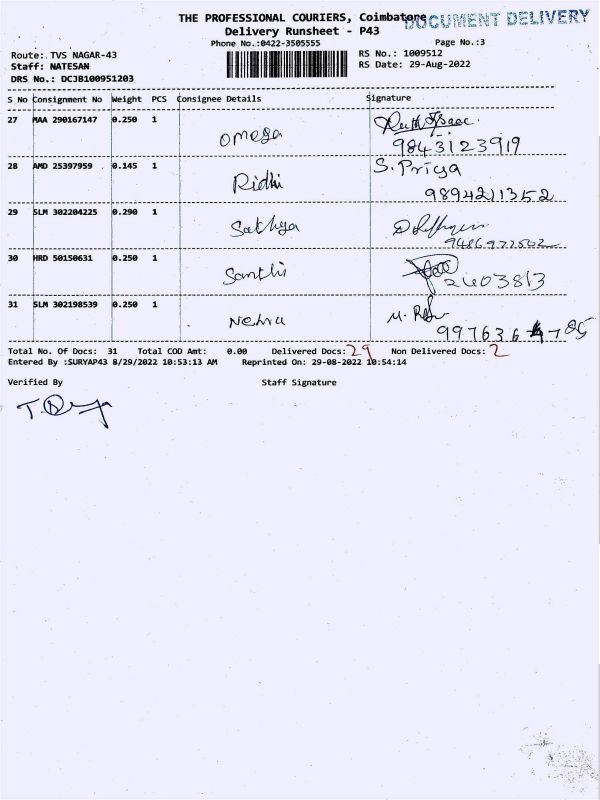 THE PROFESSIONAL COURIERS, Coimbatore
DOCUMENT DELIVERY
Delivery Runsheet - P43
Phone No.:0422-3505555 Page No.:3
Route: TVS NAGAR-43 RS No.: 1009512
Staff: NATESAN RS Date: 29-Aug-2022
DRS No.: DCJB100951203
S No Consignment No Weight PCS Consignee Details Signature
27 MAA 290167147 0.250 1
Omega
9843123919
28 AMD 25397959 0.145 1 S. Priya
Ridhi
9894211352
29 SLM 302204225 0.290 1
Sathya
9486972502
30 HRD 50150631 0.250 1
Santhi
2403813
31 SLM 302198539 0.250 1
Nehru
Total No. Of Docs: 31 Total COD Amt: 0.00 Delivered Docs: 29 Non Delivered Docs: 2
Entered By :SURYAP43 8/29/2022 10:53:13 AM Reprinted On: 29-08-2022 10:54:14
Verified By Staff Signature